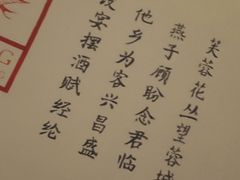 芙蓉花丛望蓉城
燕子顾盼念君临
他乡为客兴昌盛
设宴摆酒赋经纶